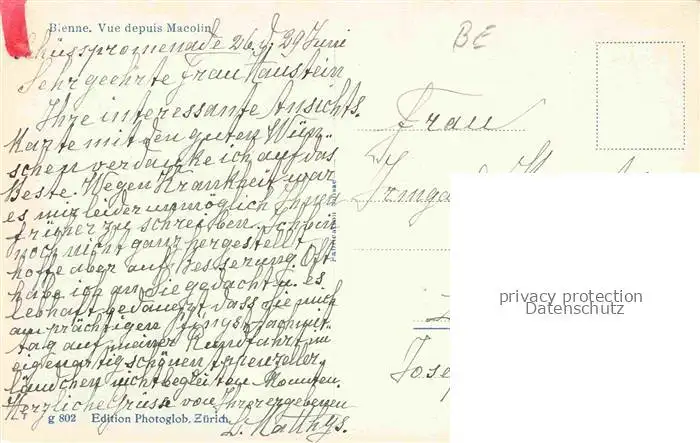 Bienne. Vue depuis Macolin
Schüsspromenade 26 d. 29 Juni
Sehr geehrte Frau Haustein
Ihre interessante Ansichts-
Karte mit den guten Wün-
schen verdanke ich auf das
Beste. Wegen Krankheit war
es mir leider unmöglich Ihnen
früher zu schreiben. Ich bin
noch nicht ganz hergestellt
hoffe aber auf Besserung. Oft
habe ich an Sie gedacht u. es
lebhaft gedauert dass Sie mich
am prächtigen Pfingstnachmit-
tag auf meiner Rundfahrt im
eigenartig schönen Appenzeller-
ländchen nicht begleiten konnten.
Herzliche Grüsse von Ihrer ergebenen
L. Matthys.
g 802 Edition Photoglob, Zürich.
BE
Frau
Jose
privacy protection
Datenschutz